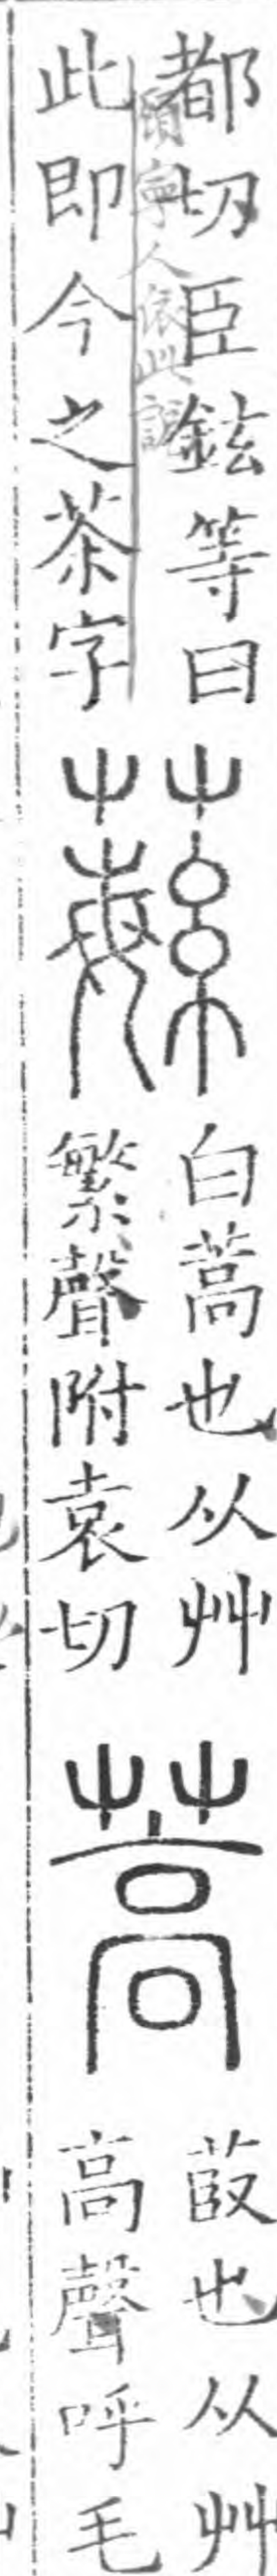 都切臣鉉等曰
寧人 此
此即今之茶字
蘩
白蒿也从艸
繁聲附袁切
蒿
菣也从艸
高聲呼毛